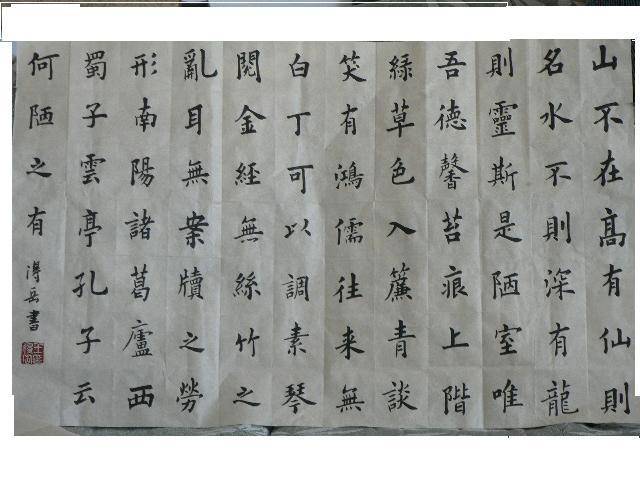 山不在高有仙則
名水不則深有龍
則靈斯是陋室唯
吾德馨苔痕上階
綠草色入簾青談
笑有鴻儒往来無
白丁可以調素琴
閱金經無絲竹之
亂耳無案牘之勞
形南陽諸葛廬西
蜀子雲亭孔子云
何陋之有
淂岳書